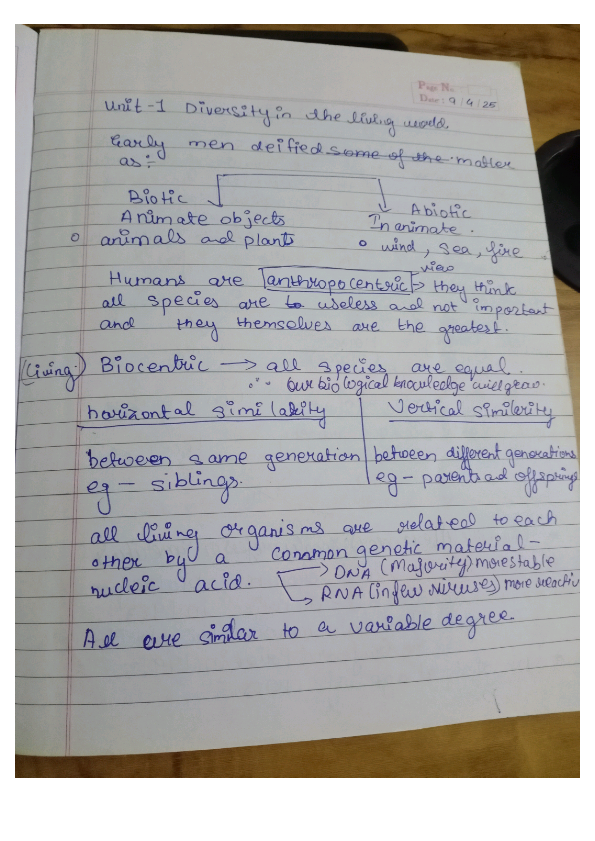 Page No.
Date: 9/4/25
Unit-1 Diversity in the living world.
Early men deified some of the matter
as:-
Biotic
Abiotic
Animate objects
In animate.
o animals and plants
o wind, sea, fire
view
Humans are anthropocentric → they think
all species are to useless and not important
and they themselves are the greatest.
(Living) Biocentric → all species are equal.
∴ our biological knowledge will grow.
horizontal similarity
Vertical similerity
between same generation
between different generations
eg - siblings.
eg - parents ad offsprings
all living organisms are related to each
other by a common genetic material -
→ DNA (majority) more stable
nucleic acid.
→ RNA (in few viruses) more reactiv
All are similar to a variable degree.